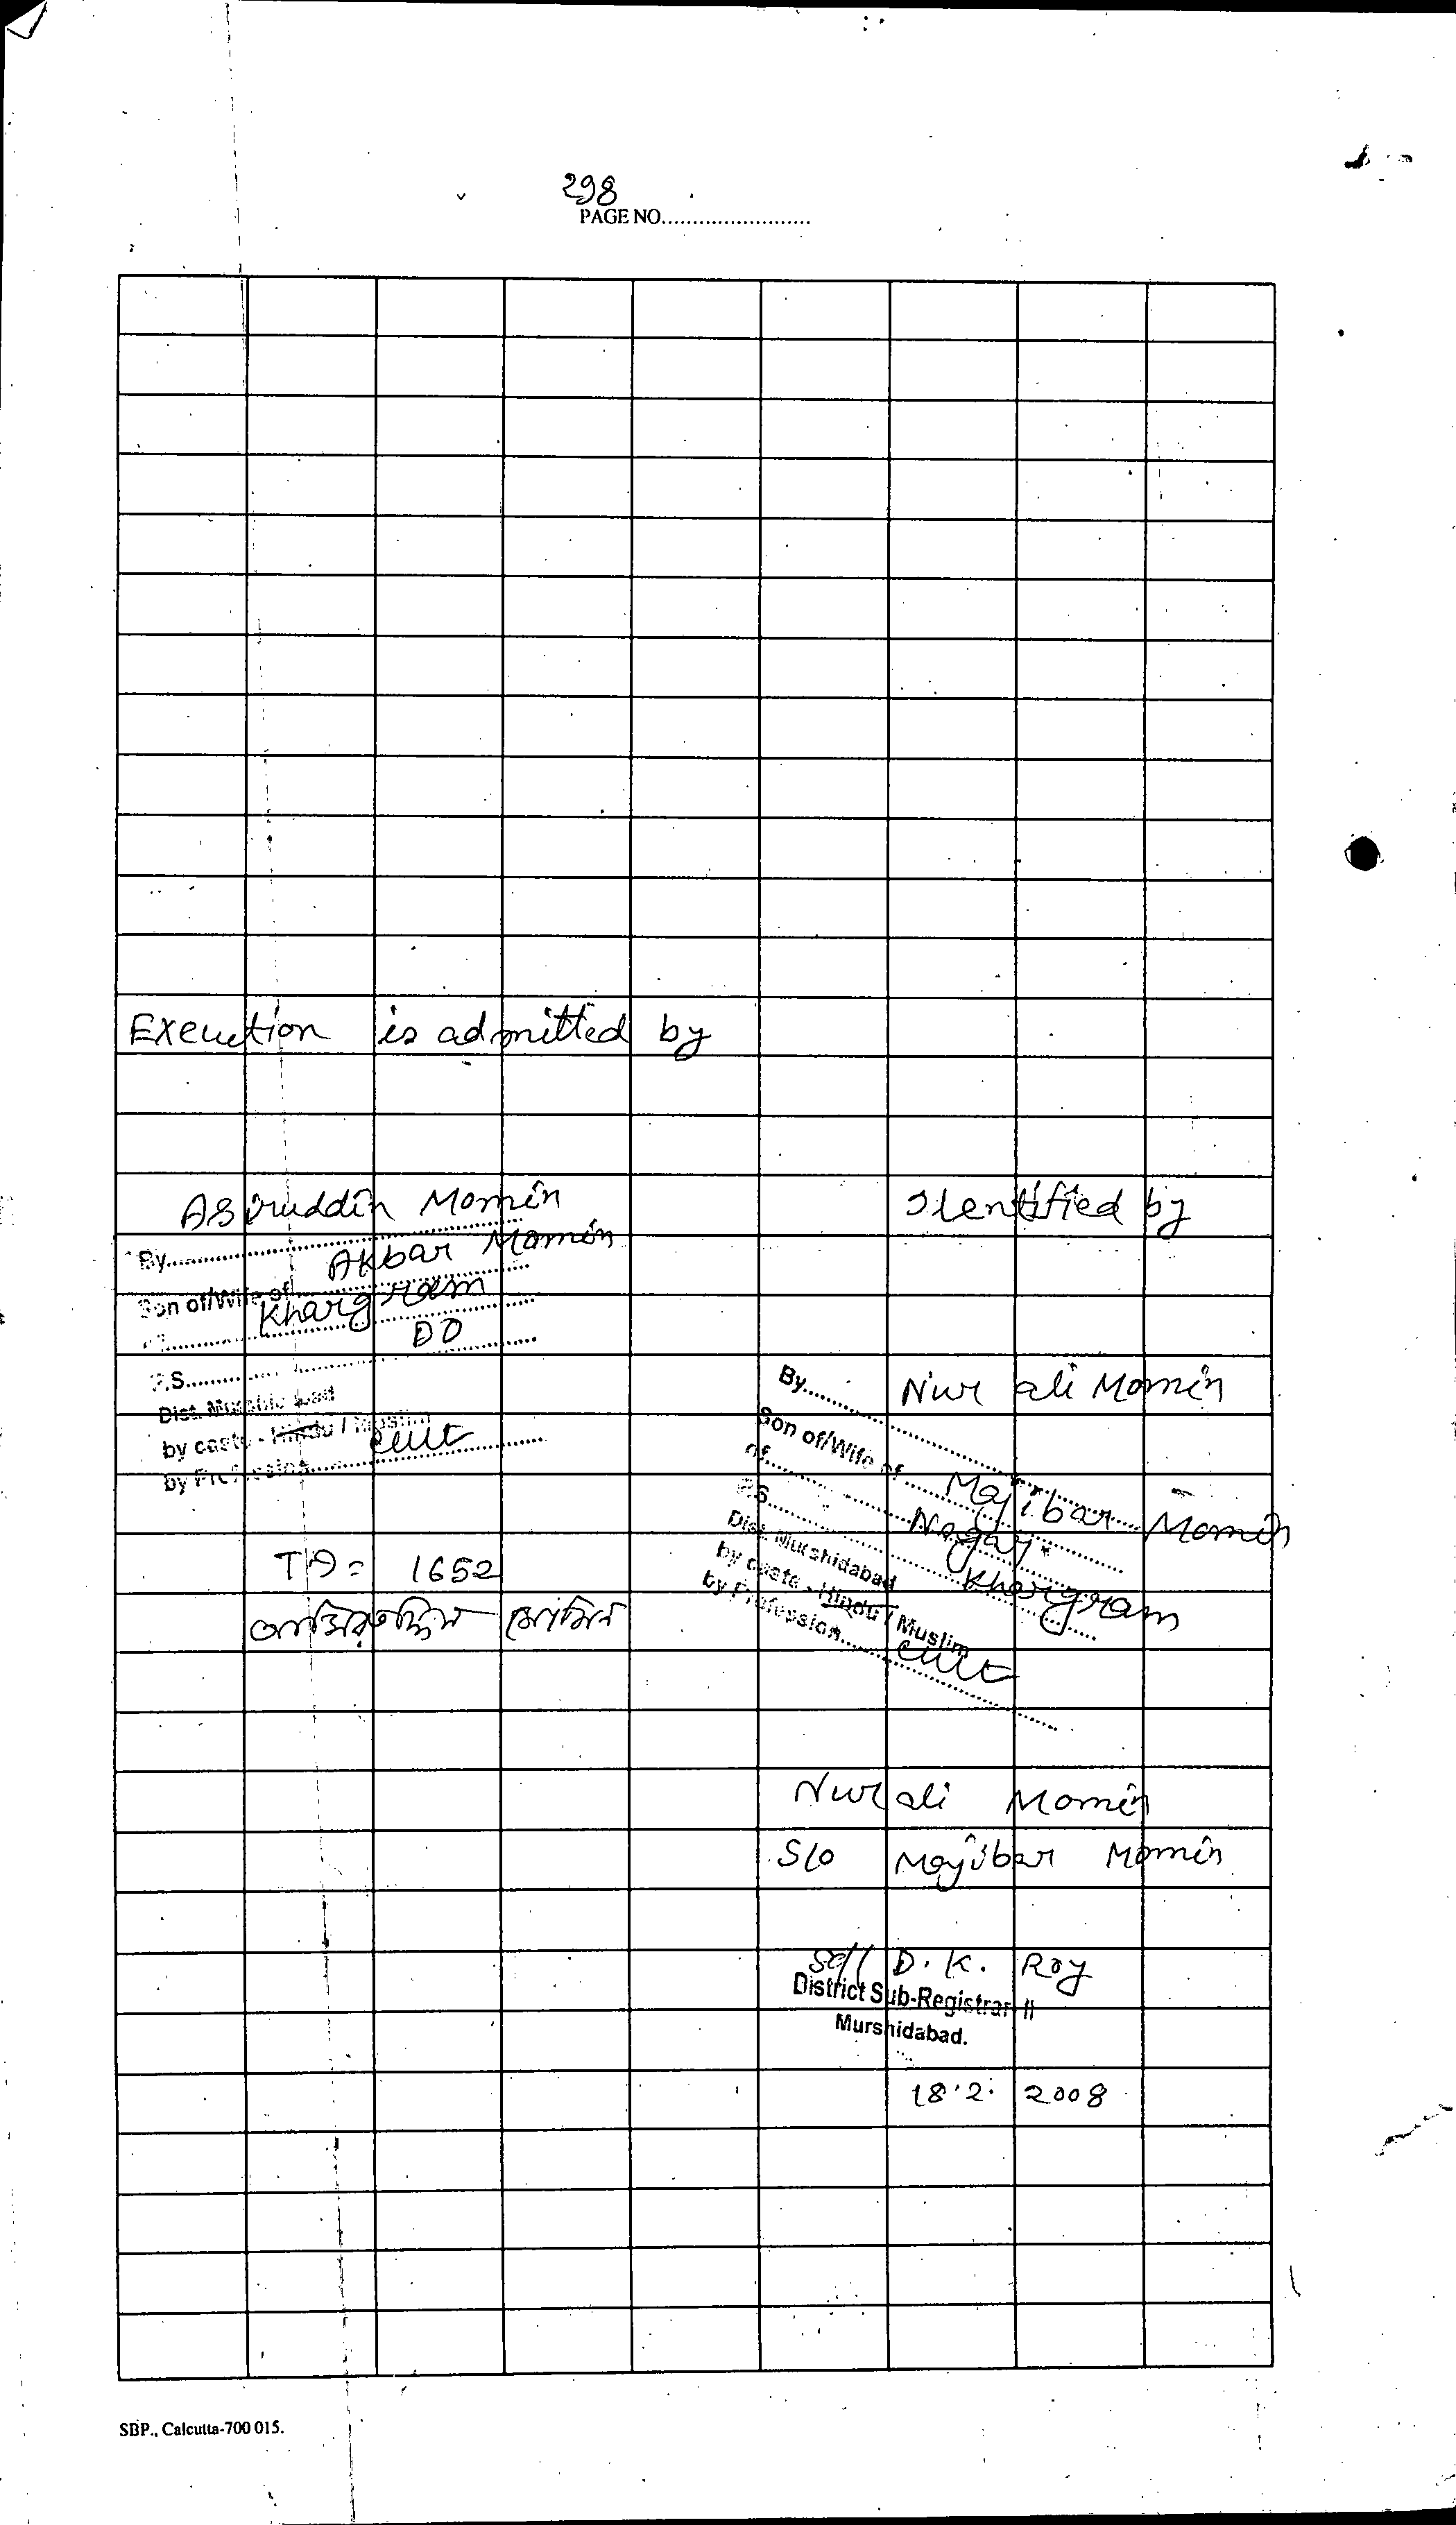 298
PAGE NO.........................
Execution is admitted by
Asiruddin Momin
By.................... Akbar Momin
Son of/Wife of Khargram
of.................... DO
P.S....................
Dist. Murshidabad
by caste - Hindu / Muslim
by Profession.................... cult
TD = 1652
আসিরুদ্দিন মোমিন
Identified by
By.................... Nur ali Momin
Son of/Wife of.................... Mojibar Momin
of.................... Nagar
P.S.................... Khargram
Dist. Murshidabad
by caste - Hindu / Muslim
by Profession.................... cult
Nur ali Momin
S/o Mojibar Momin
Sd/- D. K. Roy
District Sub-Registrar-II
Murshidabad.
18.2.2008
SBP., Calcutta-700 015.